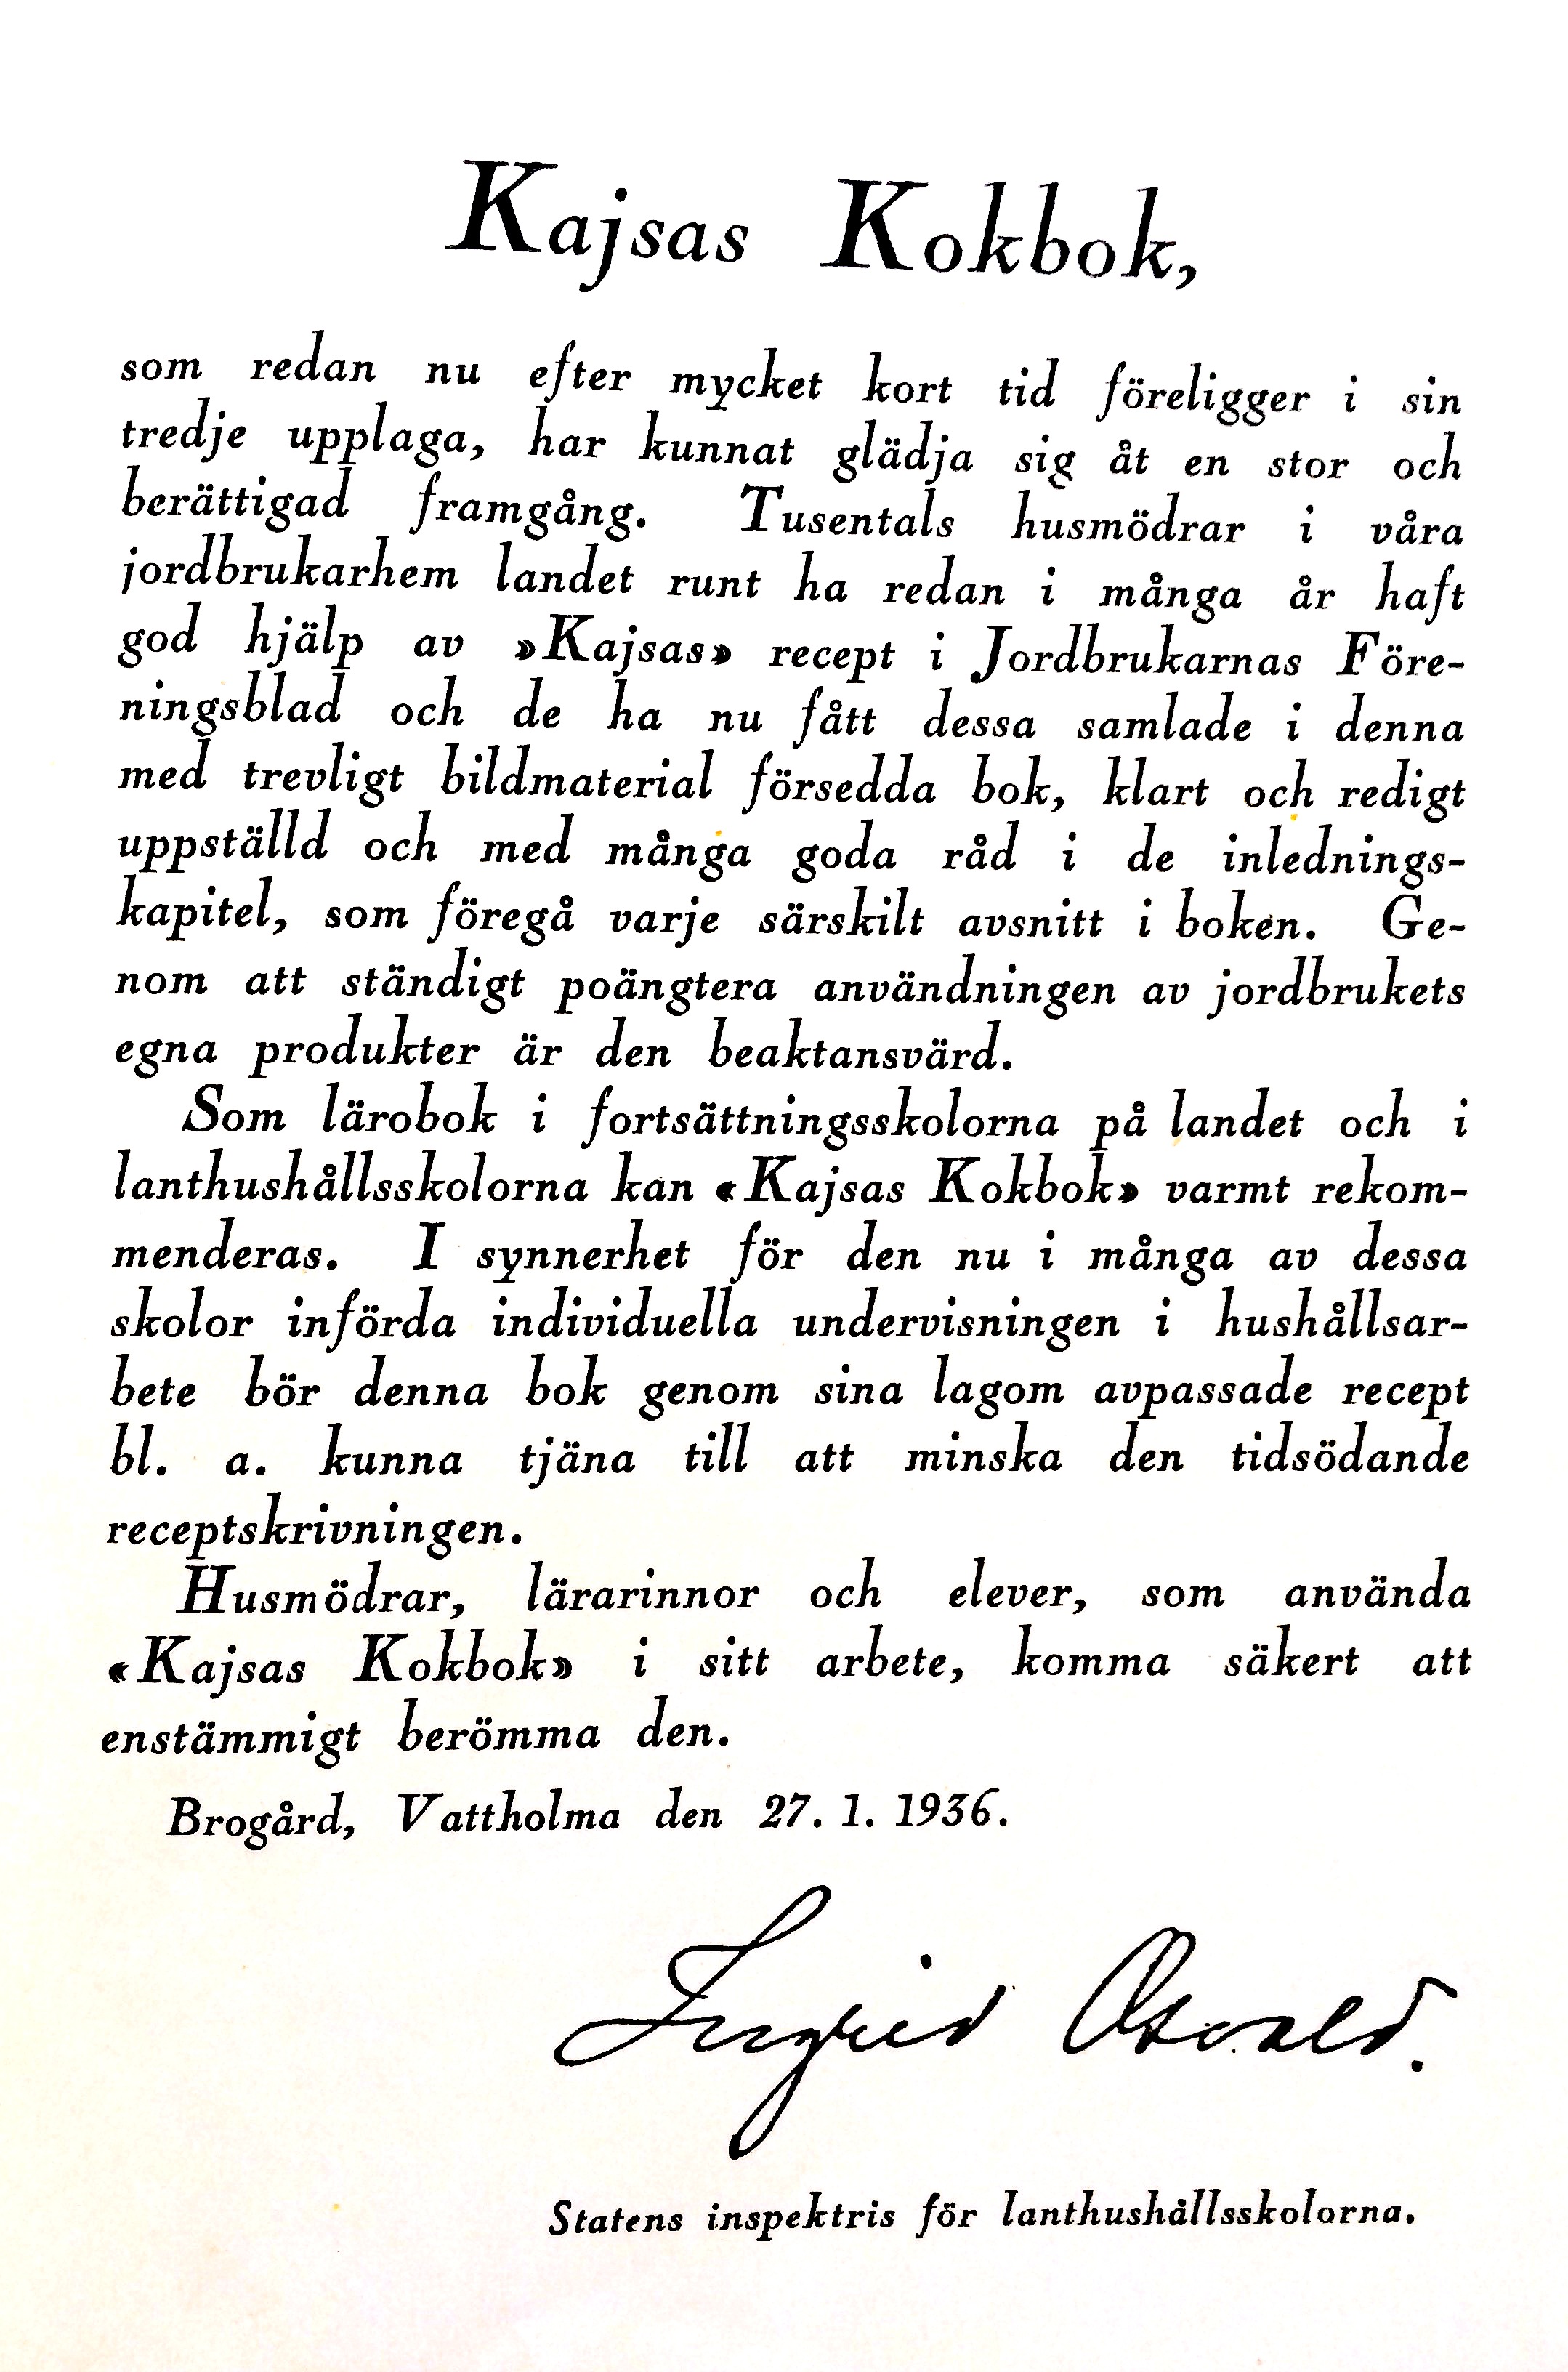 Kajsas Kokbok,
som redan nu efter mycket kort tid föreligger i sin
tredje upplaga, har kunnat glädja sig åt en stor och
berättigad framgång. Tusentals husmödrar i våra
jordbrukarhem landet runt ha redan i många år haft
god hjälp av »Kajsas» recept i Jordbrukarnas Före-
ningsblad och de ha nu fått dessa samlade i denna
med trevligt bildmaterial försedda bok, klart och redigt
uppställd och med många goda råd i de inlednings-
kapitel, som föregå varje särskilt avsnitt i boken. Ge-
nom att ständigt poängtera användningen av jordbrukets
egna produkter är den beaktansvärd.
Som lärobok i fortsättningsskolorna på landet och i
lanthushållsskolorna kan «Kajsas Kokbok» varmt rekom-
menderas. I synnerhet för den nu i många av dessa
skolor införda individuella undervisningen i hushållsar-
bete bör denna bok genom sina lagom avpassade recept
bl. a. kunna tjäna till att minska den tidsödande
receptskrivningen.
Husmödrar, lärarinnor och elever, som använda
«Kajsas Kokbok» i sitt arbete, komma säkert att
enstämmigt berömma den.
Brogård, Vattholma den 27. 1. 1936.
Ingrid Osvald.
Statens inspektris för lanthushållsskolorna.